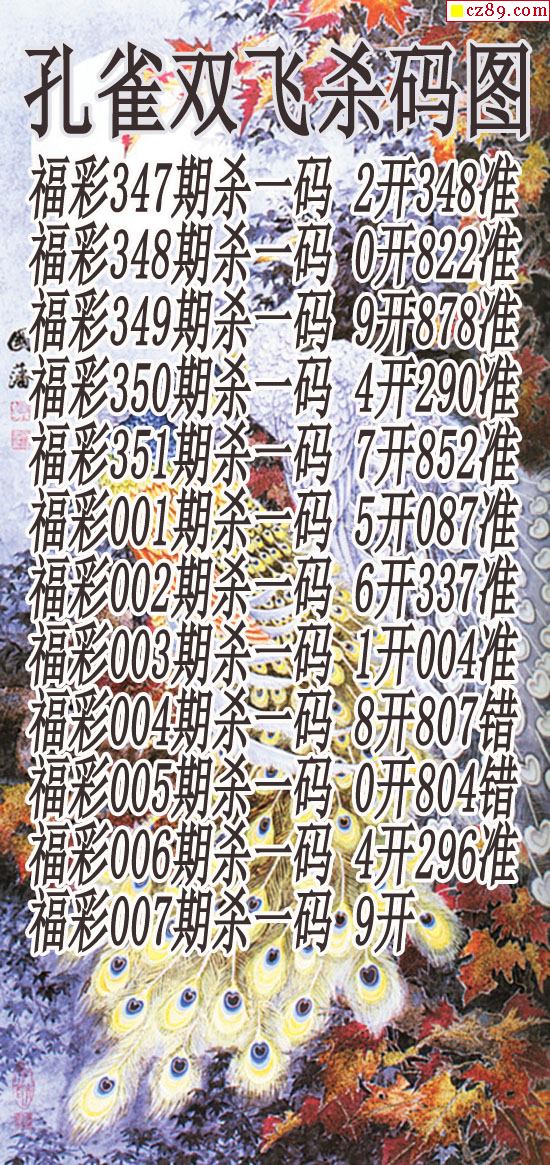 cz89.com
孔雀双飞杀码图
福彩347期杀一码 2开348准
福彩348期杀一码 0开822准
福彩349期杀一码 9开878准
福彩350期杀一码 4开290准
福彩351期杀一码 7开852准
福彩001期杀一码 5开087准
福彩002期杀一码 6开337准
福彩003期杀一码 1开004准
福彩004期杀一码 8开807错
福彩005期杀一码 0开804错
福彩006期杀一码 4开296准
福彩007期杀一码 9开